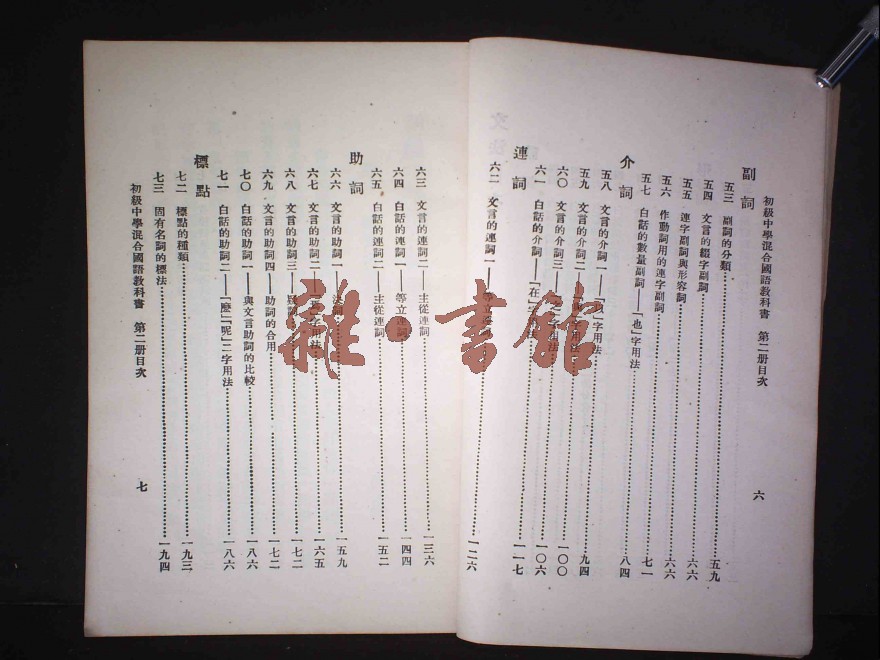 初級中學混合國語教科書　第二册目次
六
副詞
五三　副詞的分類……五九
五四　文言的綴字副詞……六六
五五　連字副詞與形容詞……六六
五六　作動詞用的連字副詞……六六
五七　白話的數量副詞——「也」字用法……七一
介詞
五八　文言的介詞一——字用法……八四
五九　文言的介詞二——字用法……九四
六〇　文言的介詞三——字用法……一〇〇
六一　白話的介詞——「在」字用法……一〇六
連詞
六二　文言的連詞一——等立連詞……一二六
六三　文言的連詞二——主從連詞……一三六
六四　白話的連詞一——等立連詞……一四四
六五　白話的連詞二——主從連詞……一五二
助詞
六六　文言的助詞一……一五九
六七　文言的助詞二——字用法……一六五
六八　文言的助詞三——……一七二
六九　文言的助詞四——助詞的合用……一七二
七〇　白話的助詞一——與文言助詞的比較……一八六
七一　白話的助詞二——「麼」「呢」二字用法……一八六
標點
七二　標點的種類……一九三
七三　固有名詞的標法……一九四
初級中學混合國語教科書　第二册目次
七
雜·書館